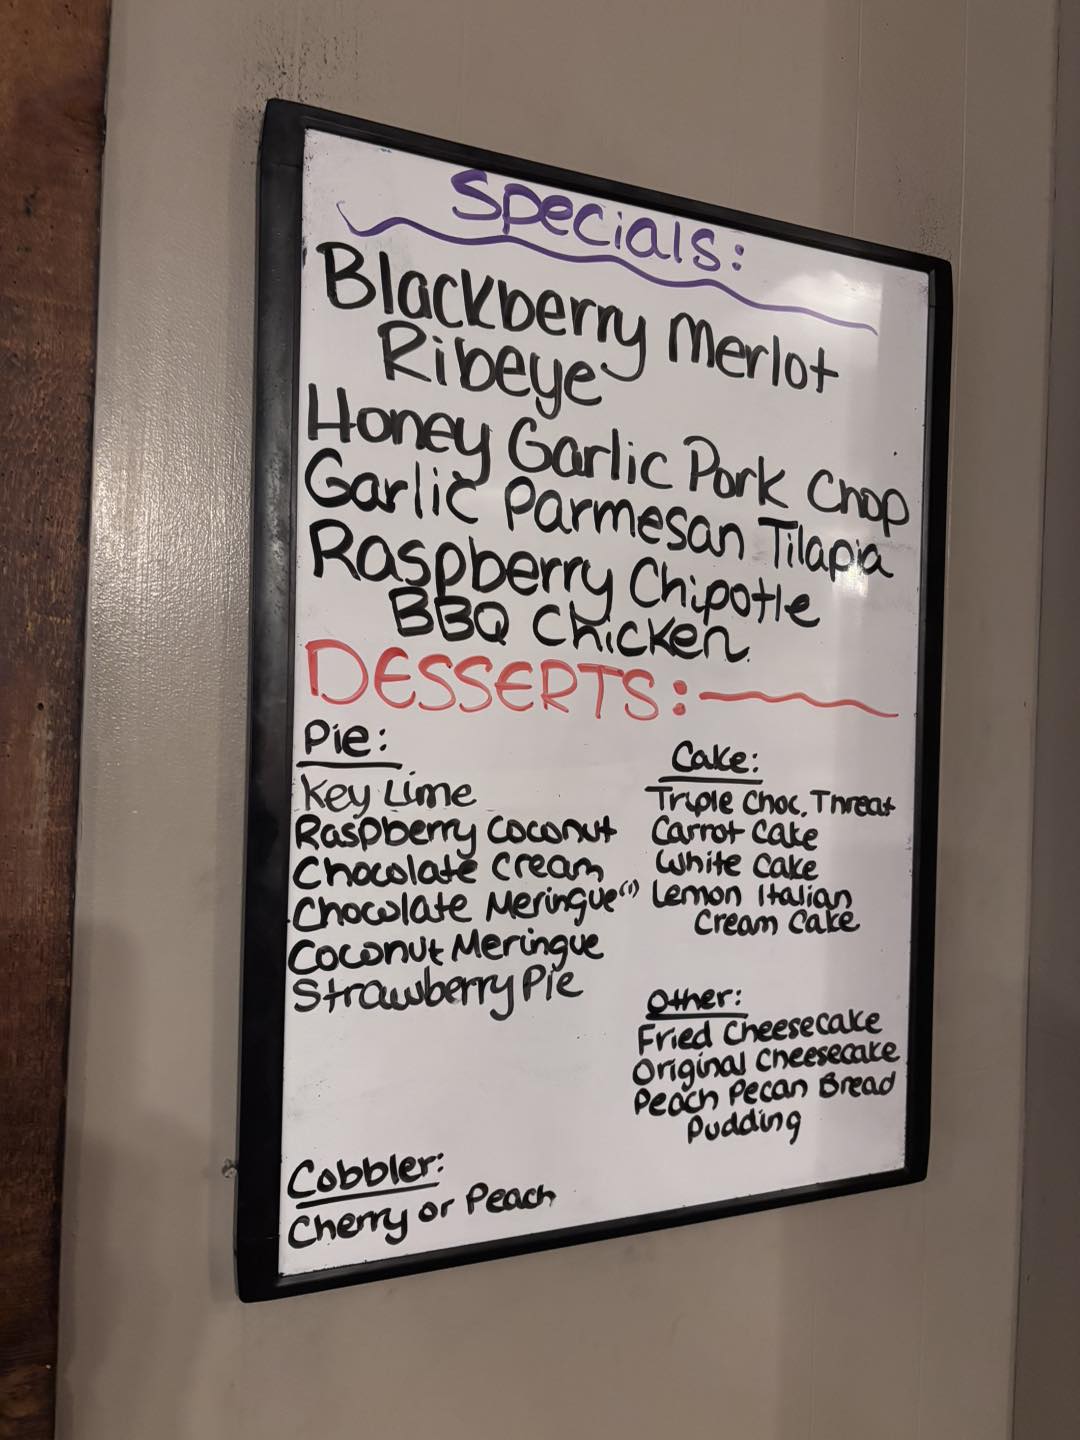 Specials:
Blackberry Merlot
Ribeye
Honey Garlic Pork Chop
Garlic Parmesan Tilapia
Raspberry Chipotle
BBQ Chicken
DESSERTS:
Pie:
Key Lime
Raspberry Coconut
Chocolate Cream
Chocolate Meringue (1)
Coconut Meringue
Strawberry Pie
Cake:
Triple Choc. Threat
Carrot Cake
White Cake
Lemon Italian
Cream Cake
Other:
Fried Cheesecake
Original Cheesecake
Peach Pecan Bread
Pudding
Cobbler:
Cherry or Peach